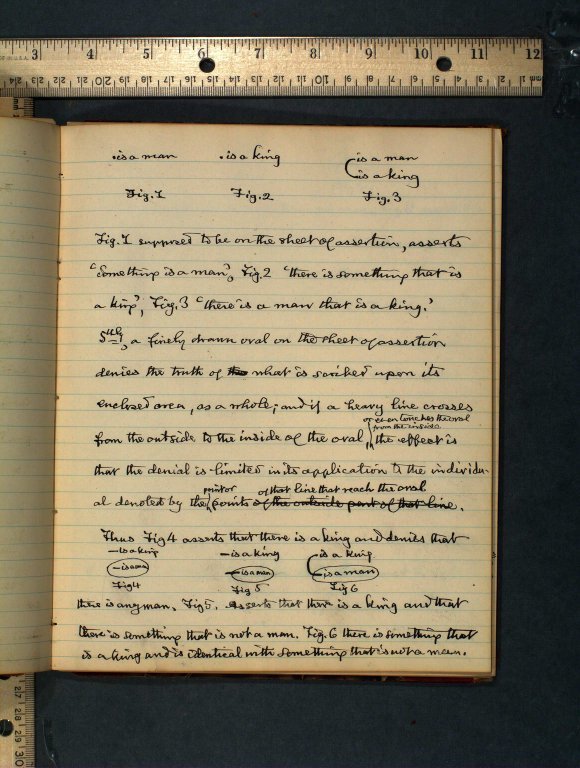 3 4 5 6 7 8 9 10 11 12
·is a man ·is a king is a man
is a king
Fig. 1 Fig. 2 Fig. 3
Fig. 1 supposed to be on the sheet of assertion, asserts
"Something is a man", Fig. 2 "there is something that is
a king", Fig. 3 "there is a man that is a king."
5thly, a finely drawn oval on the sheet of assertion
denies the truth of the what is scribed upon its
enclosed area, as a whole; and if a heavy line crosses
or even touches the oval
from the inside
from the outside to the inside of the oval, the effect is
that the denial is limited in its application to the individu-
point or of that line that reach the oval
al denoted by the points of the outside part of that line.
Thus Fig 4 asserts that there is a king and denies that
–is a king –is a king is a king
–is a man –is a man –is a man
Fig 4 Fig 5 Fig 6
there is any man. Fig 5. asserts that there is a king and that
there is something that is not a man. Fig. 6 there is something that
is a king and is identical with something that is not a man.